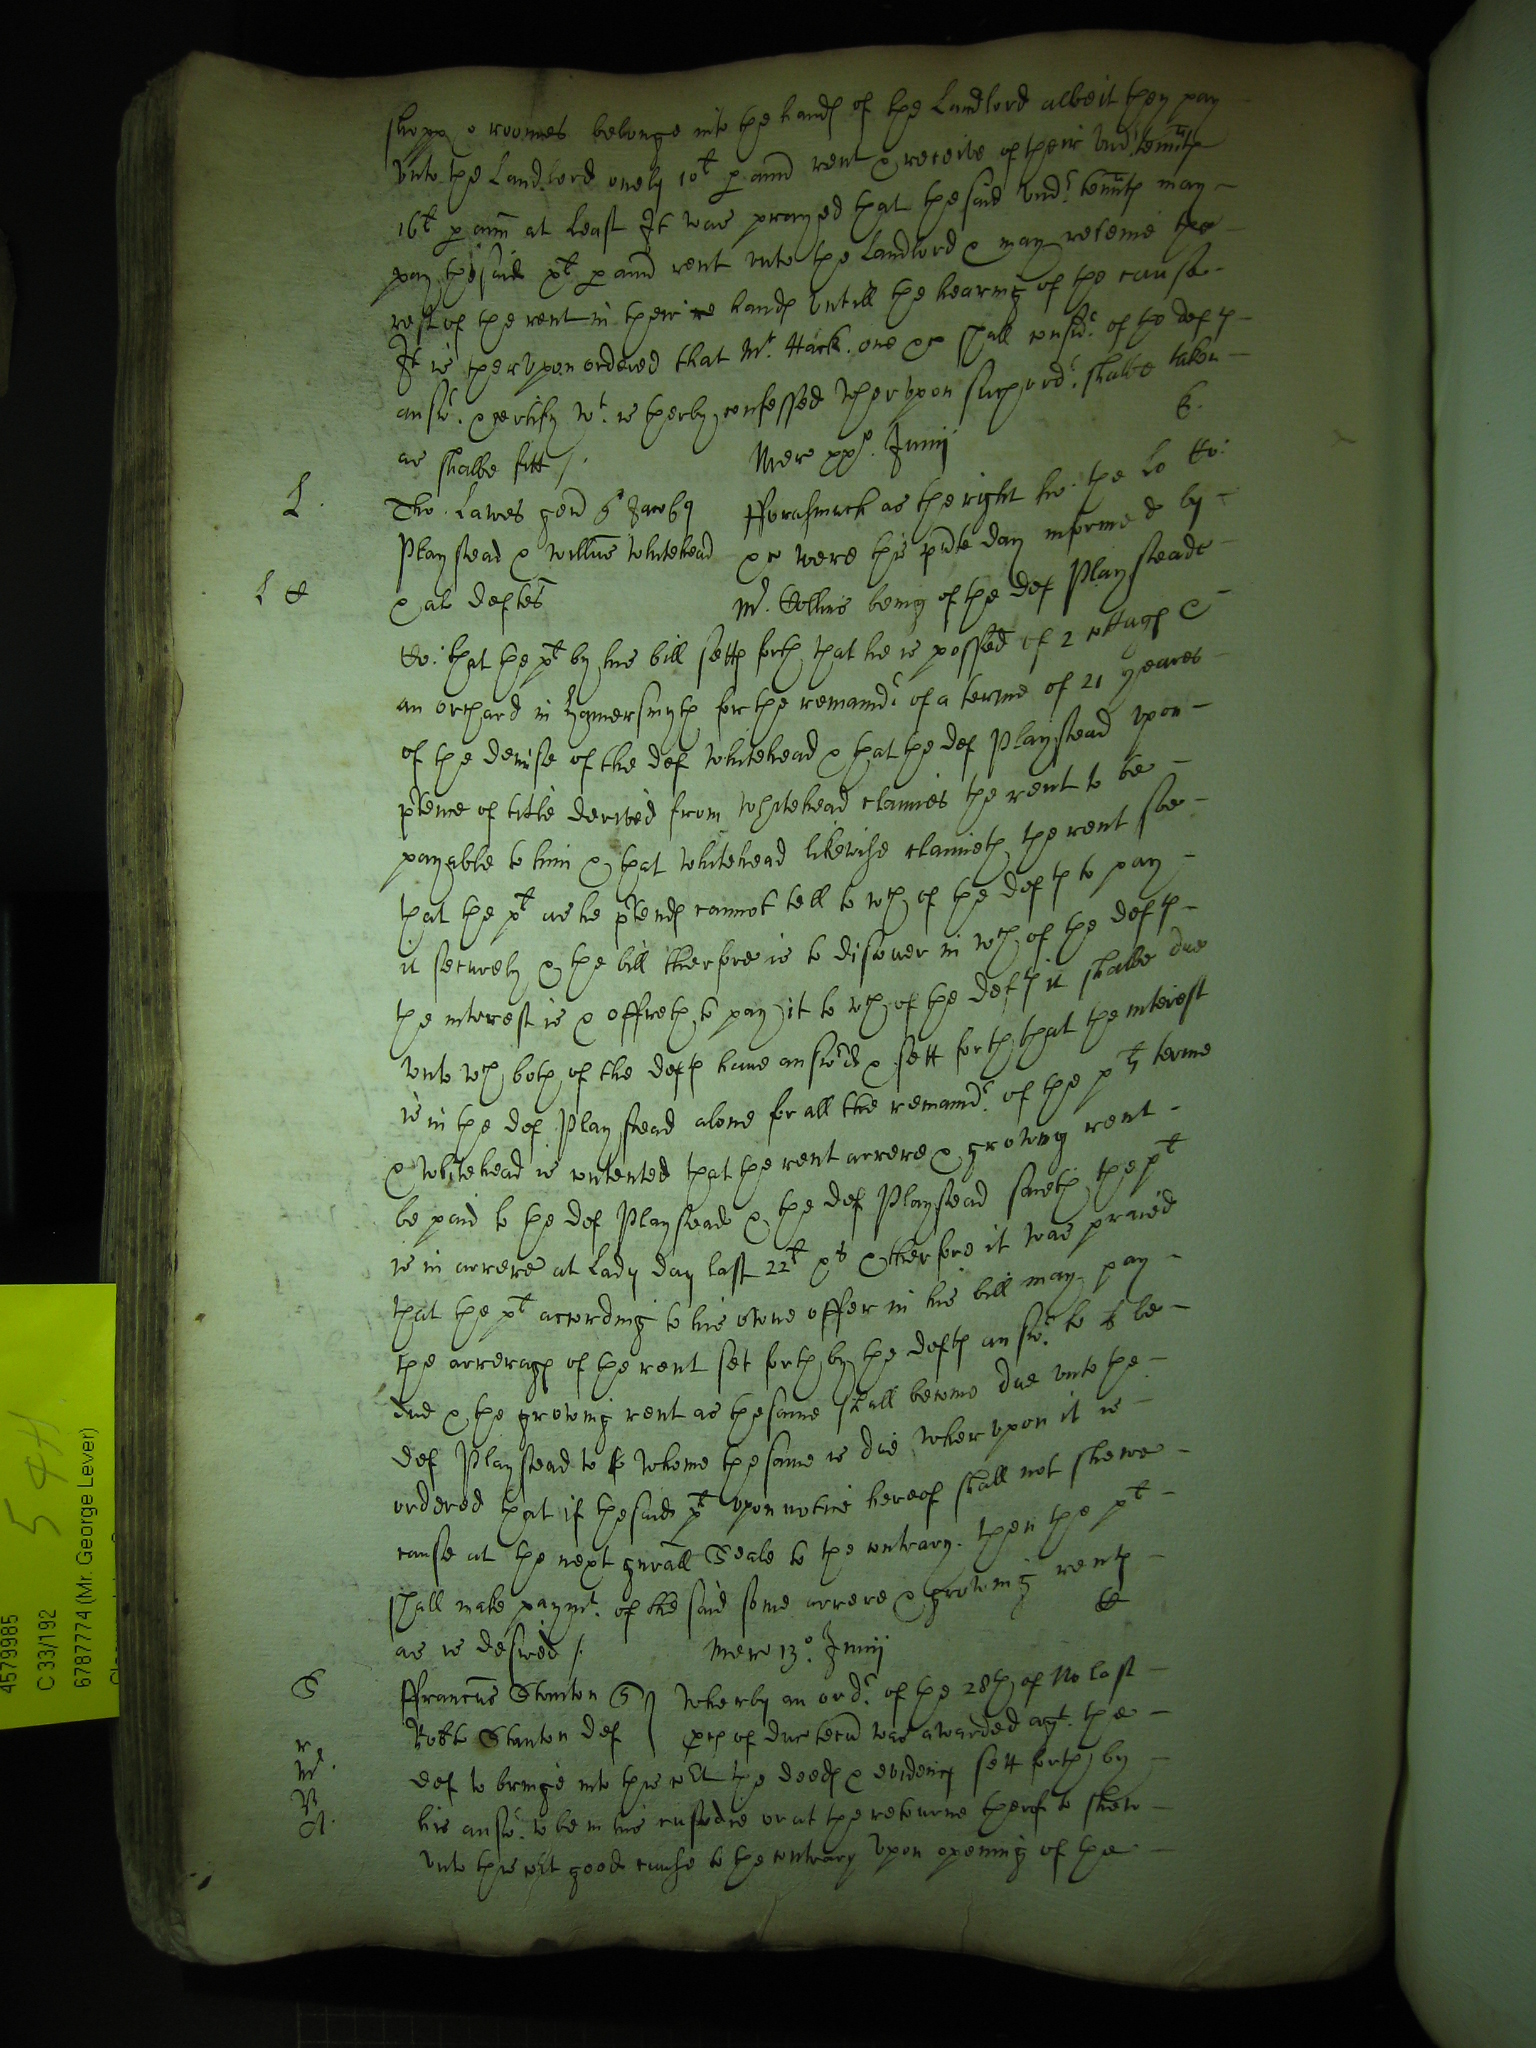 shopp & roomes belonge into the hand of the Landlord albeit they pay
vnto the Landlord onely 10l p ann rent & receive of their vnd tennts
16l p ann at least It was prayed that the said vndr tennts may
pay the said xl p ann rent vnto the Landlord & may reteine the
rest of the rent in their hands vntill the hearing of the cause
It is therevpon ordered that Mr. Hack. one &c shall consider of the defts
answ. & certify wt. is therby confessed Wherevpon such ordr. shalbe taken
as shalbe fitt /. Mer xxo. Junij
L. Tho. Lawes gen Jacobq fforasmuch as the right ho: the Lo
Playstead & Willms Whitehead &c were this pnte day informed by
L al deftes Mr. Collins being of the def Playsteade
Co: that the plt by his bill setts forth that he is possed of 2 cottages &
an orchard in for the remaindr of a terme of 21 yeares
of the demise of the def Whitehead & that the def Playstead vpon
ptence of title derived from Whitehead claimes the rent to be
payable to him & that Whitehead likewise claimeth the rent soe
that the plt as he ptends cannot tell to wch of the defts to pay
it securely & the bill therfore is to discouer in wch of the defts
the interest is & offreth to pay it to wch of the defts it shalbe due
vnto wch both of the defts haue answred & sett forth that the interest
is in the def Playstead alone for all the remaindr. of the plts terme
& Whitehead is contented that the rent arrere & growing rent
be paid to the def Playstead & the def Playstead saieth the plt
is in arrere at Lady day last 22l xs & therfore it was praied
that the plt according to his owne offer in his bill may pay
the arrerags of the rent set forth by the defts answr. to be
due & the growing rent as the same shall become due vnto the
def Playstead to whome the same is due Wherevpon it is
ordered that if the said plt vpon notice hereof shall not shewe
cause at the next gnrall Seale to the contrary. then the plt
shall make paymt. of the said some arrere & growing rents
as is desired /. Mer 13o. Junij
S ffrancus Stanton Whereby an ordr. of the 28th of No last
Robto Stanton def of duc tecu was awarded agt. the
def to bringe into this cort the deeds & evidencs sett forth by
his answ. to be in his custodie or at the retourne therof to shew
vnto this cort good cause to the contrary Vpon opening of the
4579985
C 33/192
6787774 (Mr. George Lever)